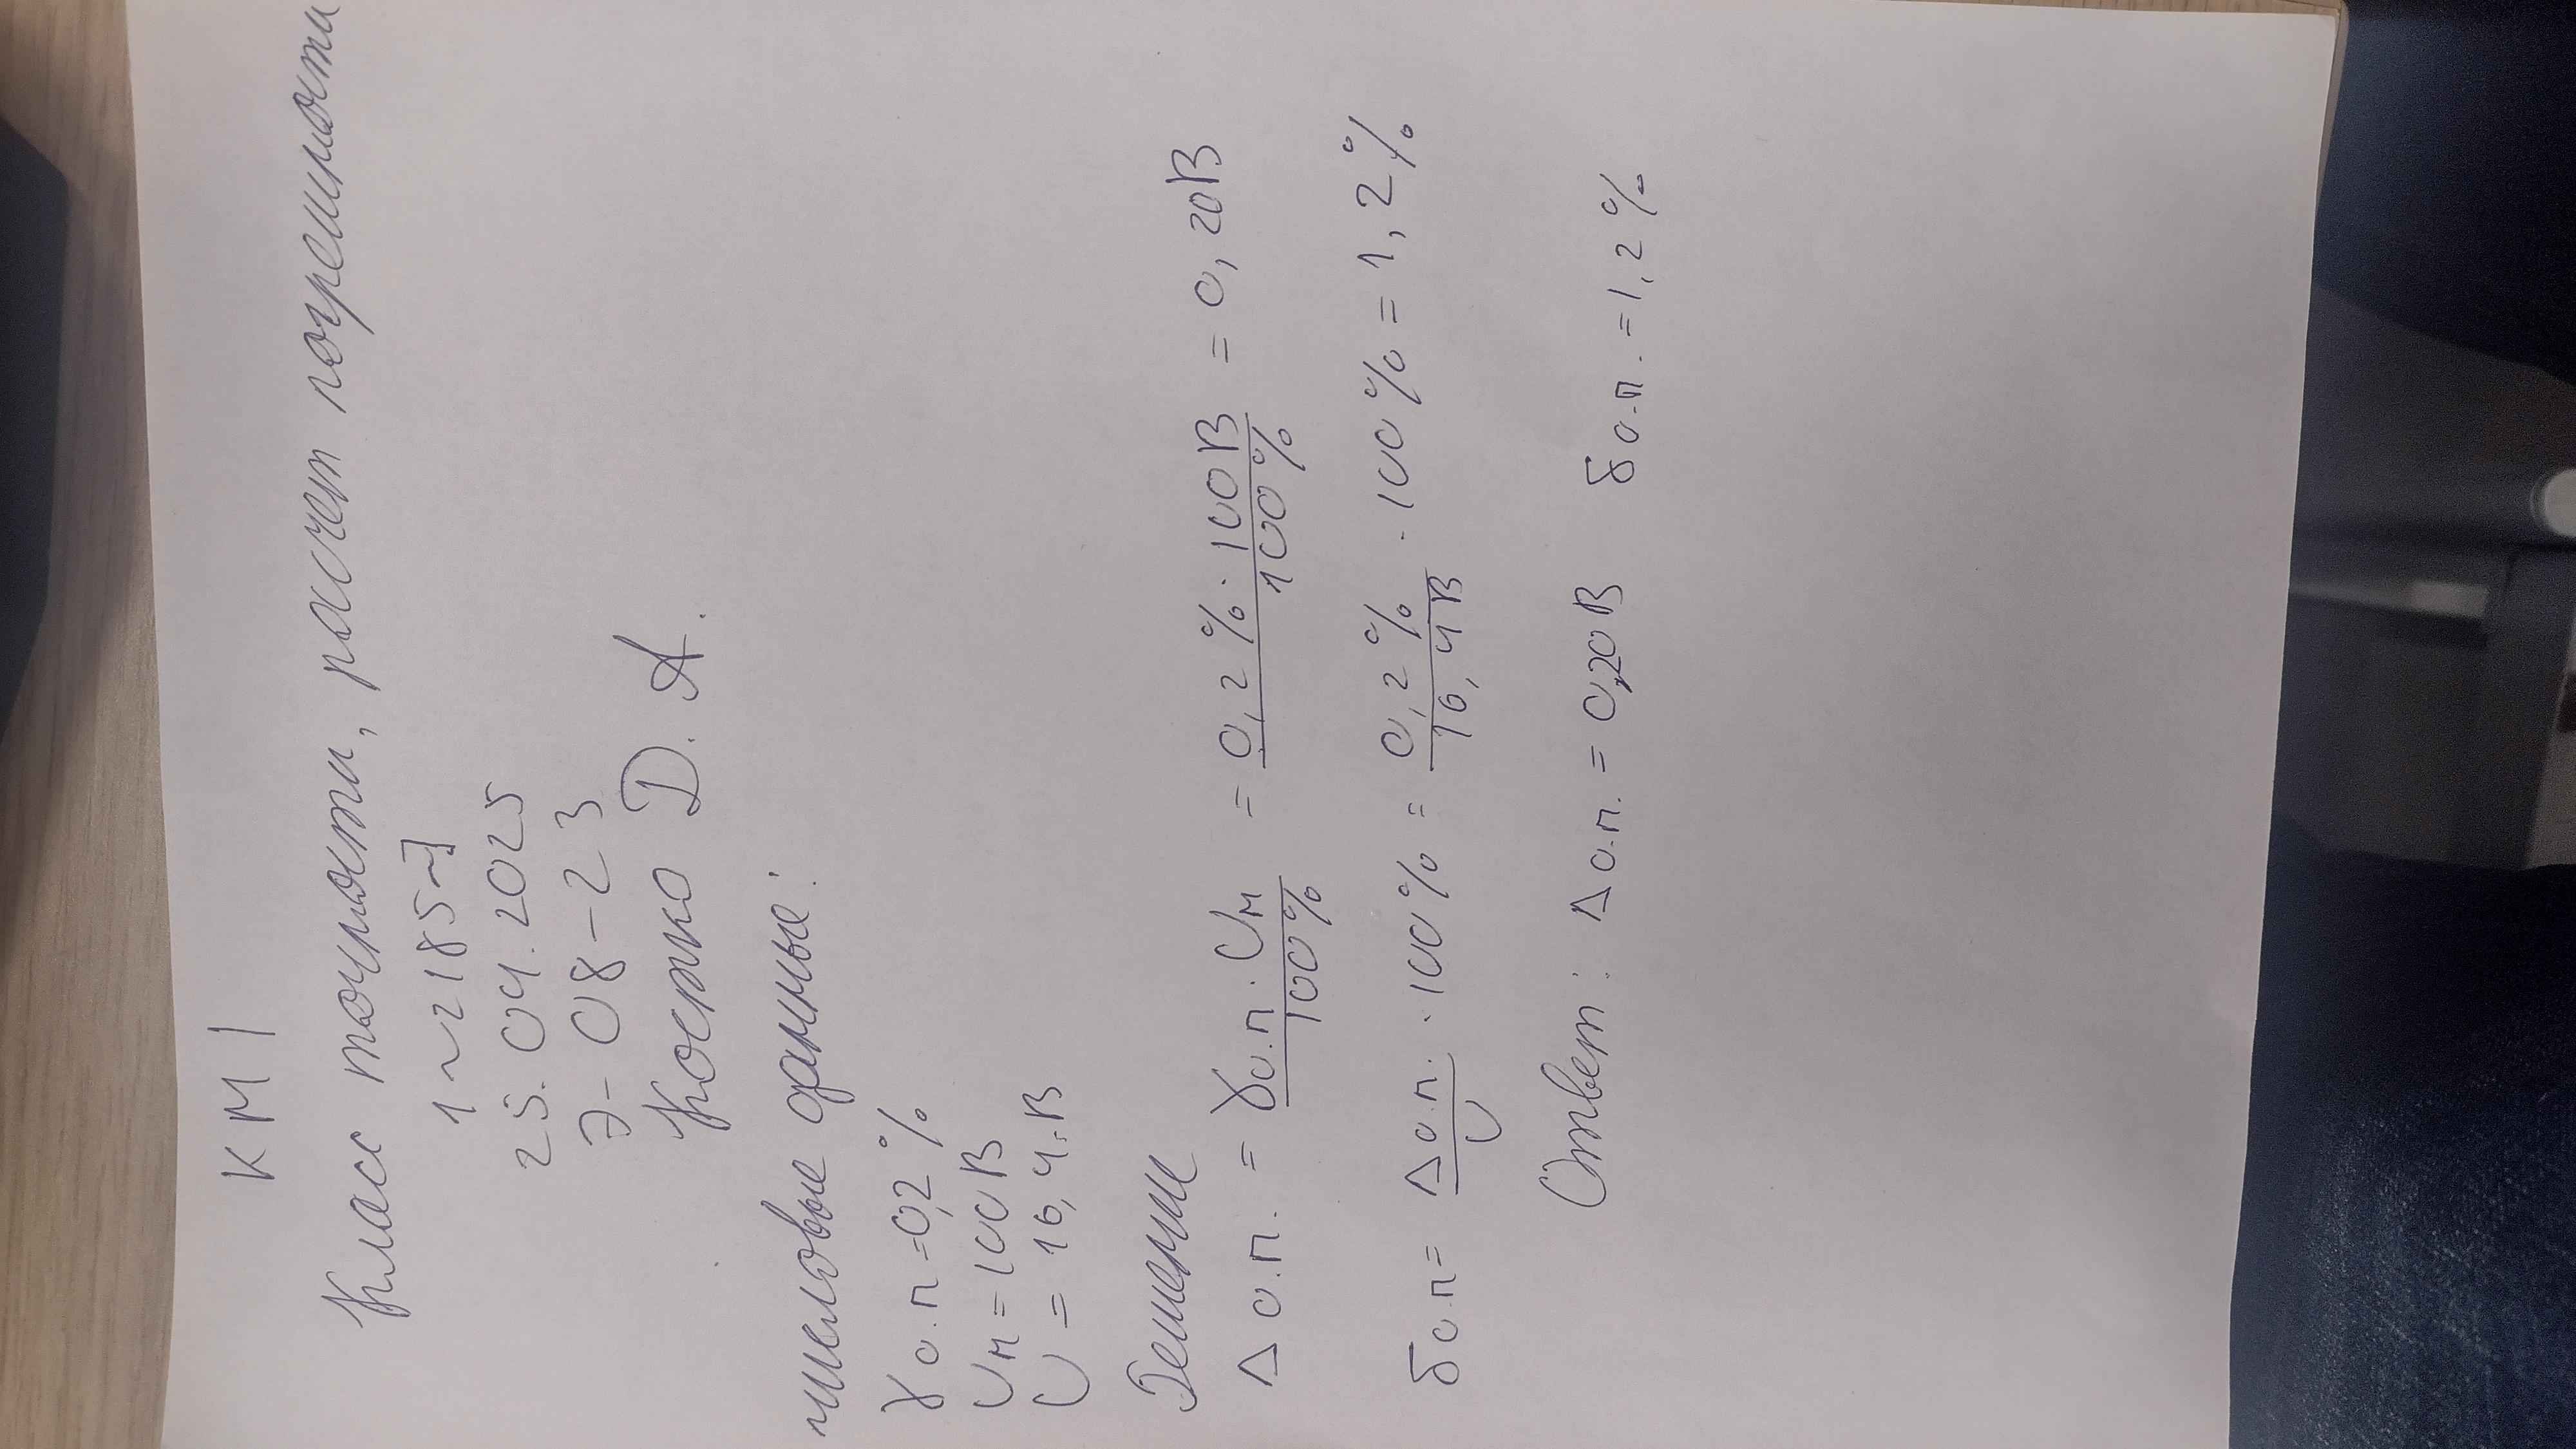 КМ 1
Класс точности, расчет погрешности
25.04.2025
Э-08-23
Костко Д.А.
числовые данные:
γо.п = 0,2%
Uм = 100В
U = 16,4.В
Решение
Δо.п. = γо.п · Uм / 100% = 0,2% · 100В / 100% = 0,20В
δо.п = Δо.п. / U · 100% = 0,2% / 16,4В · 100% = 1,2%
Ответ: Δо.п. = 0,20В δо.п. = 1,2%